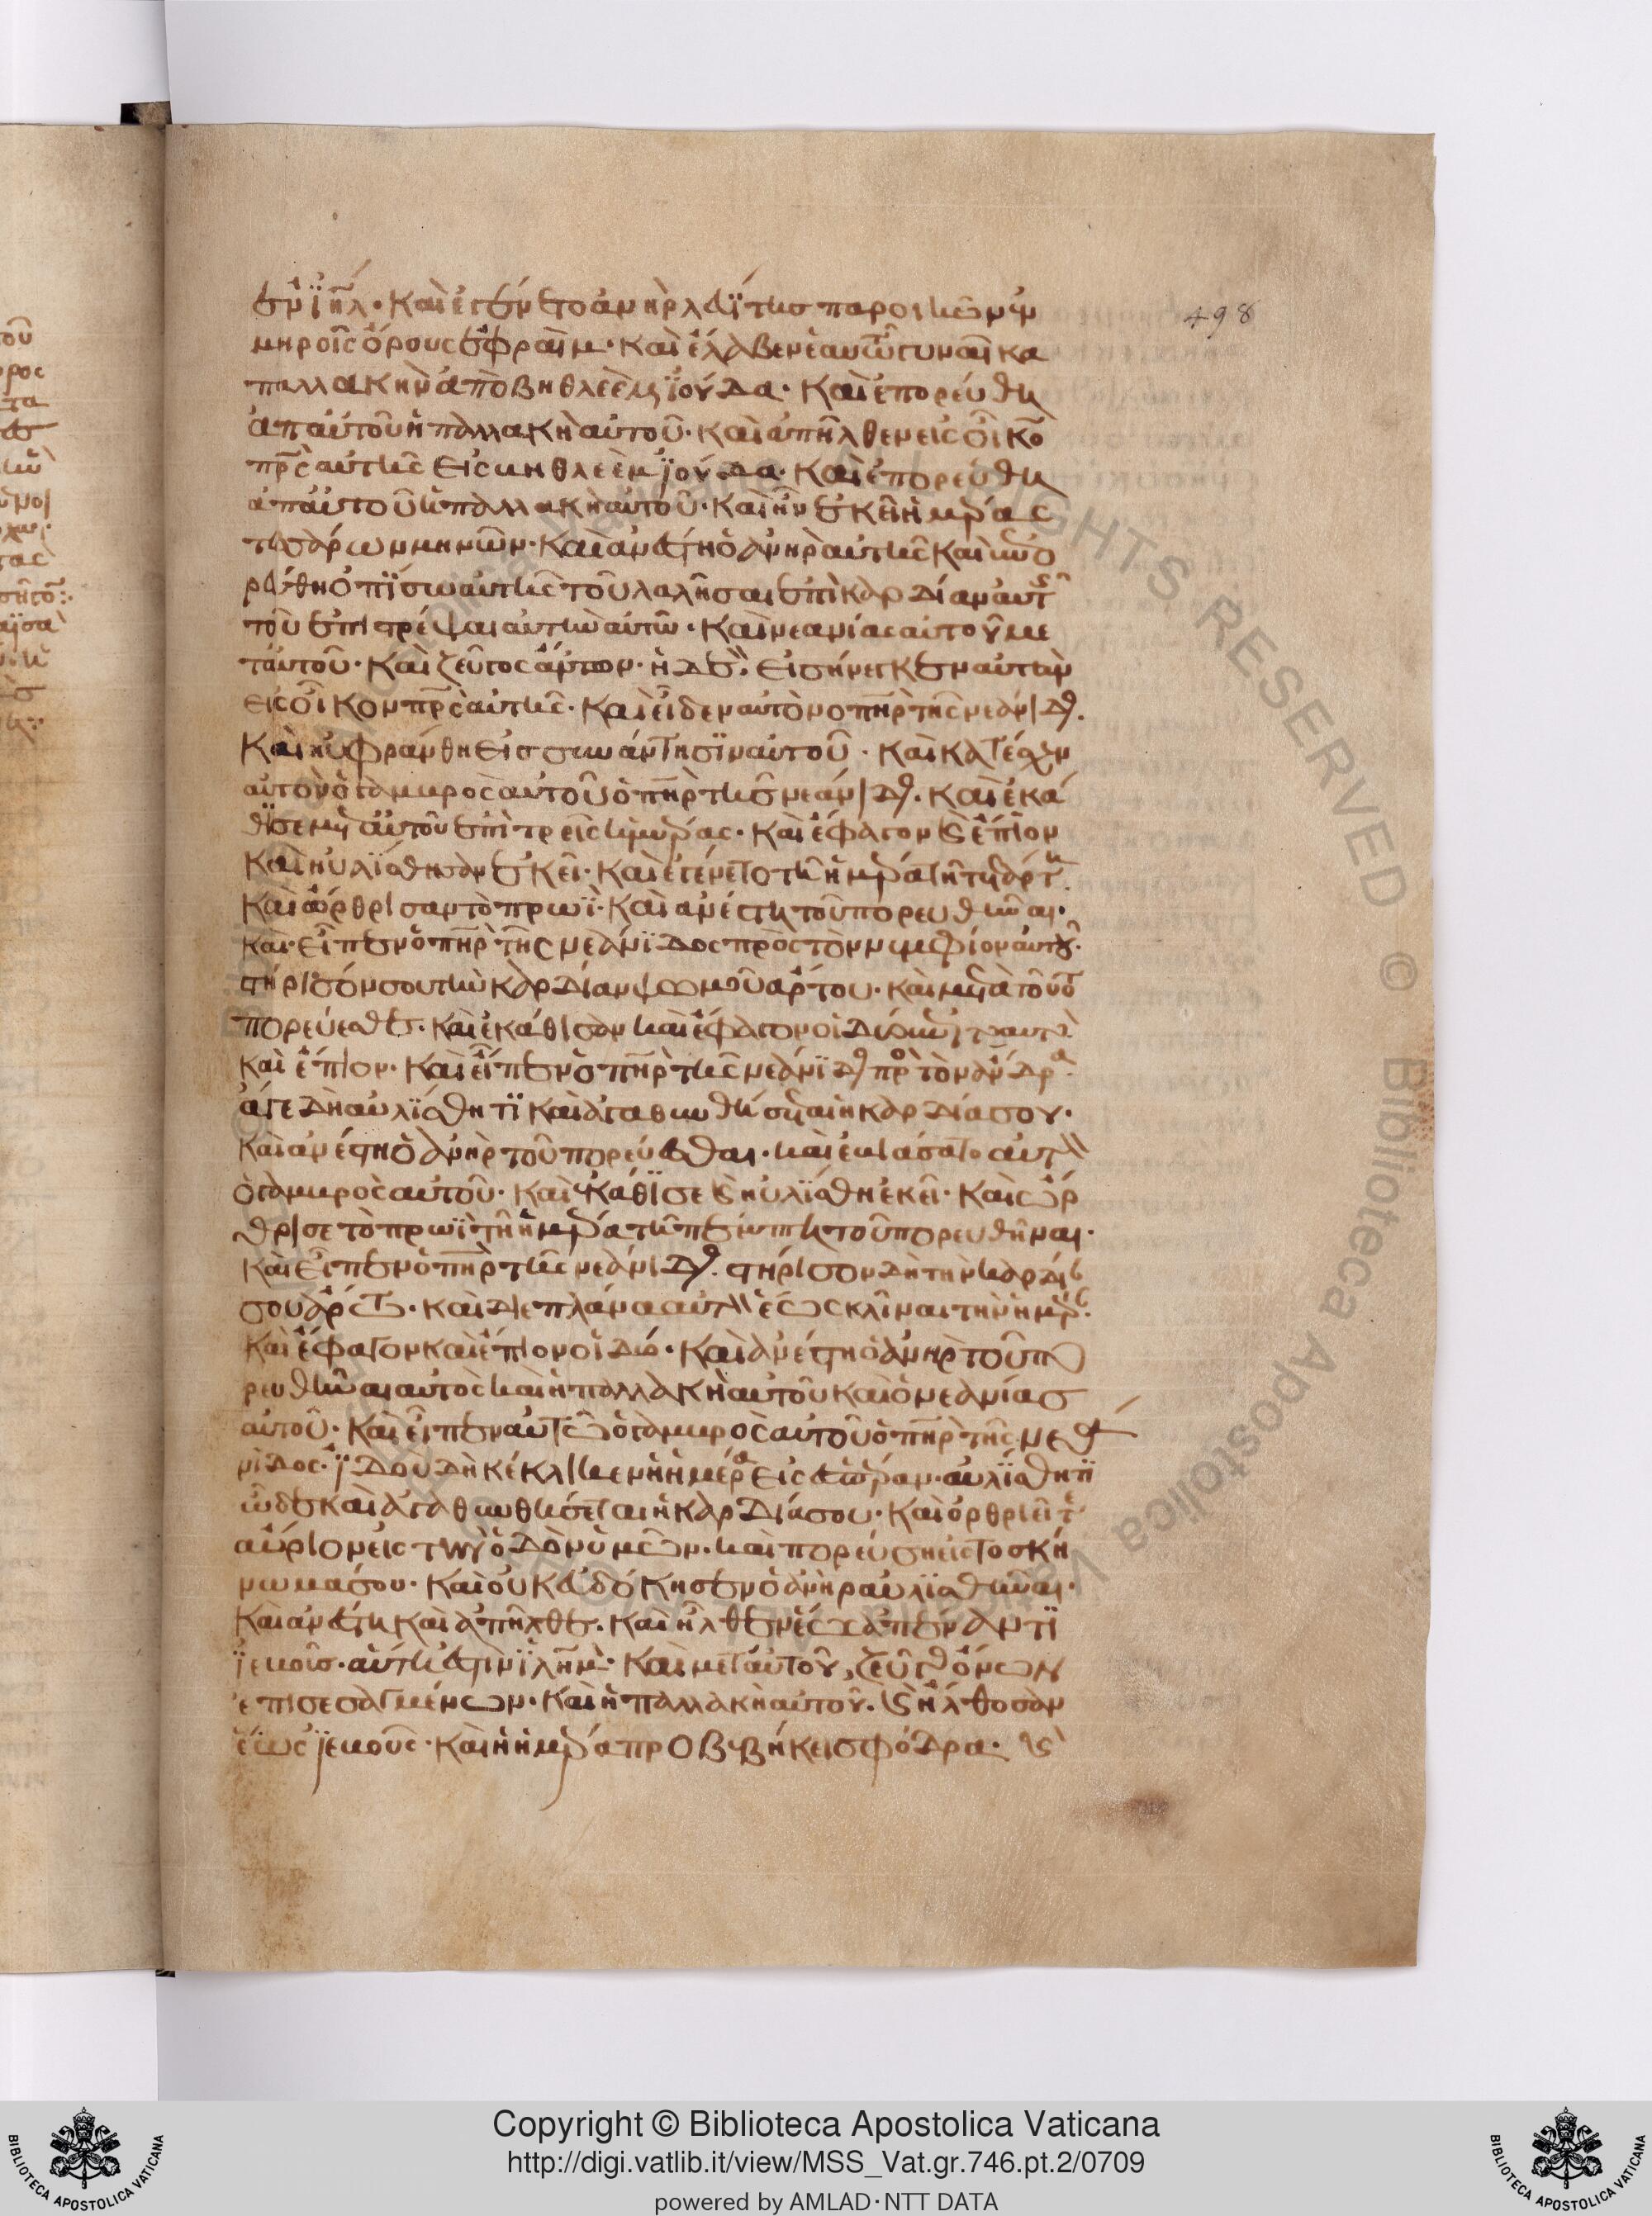 ἐν ἰηλ· Καὶ ἐγένετο ἀνὴρ λευΐτης παροικῶν ἐν
μηροῖς ὄρους ἐφραΐμ· καὶ ἔλαβεν ἑαυτῶ γυναῖκα
παλλακὴν ἀπὸ βηθλεὲμ ἰούδα· Καὶ ἐπορεύθη
ἀπ' αὐτοῦ ἡ παλλακὴ αὐτοῦ· καὶ ἀπῆλθεν εἰς οἶκο
πρς αὐτῆς εἰς βηθλεὲμ ἰούδα· Καὶ ἐπορεύθη
ἀπ' αὐτοῦ ἡ παλλακὴ αὐτοῦ· Καὶ ἦν ἐκεῖ ἡμέρας
τεσσάρων μηνῶν· Καὶ ἀνέστη ὁ ἀνὴρ αὐτῆς καὶ ἐπο
ρεύθη ὀπίσω αὐτῆς τοῦ λαλῆσαι ἐπὶ καρδίαν αὐτῆς
τοῦ ἐπιστρέψαι αὐτὴν αὐτῶ· Καὶ νεανίας αὐτοῦ με
τ' αὐτοῦ· Καὶ ζεῦγος ὄνων· ἡ δὲ εἰσήνεγκεν αὐτὸν
εἰς οἶκον πρς αὐτῆς· Καὶ εἶδεν αὐτὸν ὁ πηρ τῆς νεάνιδο
Καὶ ηὐφράνθη εἰς συνάντησιν αὐτοῦ· καὶ κατέσχεν
αὐτὸν ὁ γαμβρὸς αὐτοῦ ὁ πηρ τῆς νεάνιδο· Καὶ ἐκά
θισε μετ' αὐτοῦ ἐπὶ τρεῖς ἡμέρας· Καὶ ἔφαγον καὶ ἔπιον
Καὶ ηὐλίσθησαν ἐκεῖ· Καὶ ἐγένετο τῆ ἡμέρα τῆ τετάρτη
Καὶ ὤρθρισαν τὸ πρωΐ· Καὶ ἀνέστη τοῦ πορευθῆναι·
καὶ εἶπεν ὁ πηρ τῆς νεάνιδος πρὸς τὸν νυμφίον αὐτοῦ·
στήρισόν σου τὴν καρδίαν ψωμοῦ ἄρτου· καὶ μετὰ τοῦτο
πορεύεσθε· Καὶ ἐκάθισαν καὶ ἔφαγον οἱ δύο ἐπὶ τὸ αὐτὸ
Καὶ ἔπιον· Καὶ εἶπεν ὁ πηρ τῆς νεάνιδο πρὸ τὸν ἄνδρα
ἄγε δὴ αὐλίσθητι καὶ ἀγαθυνθήσεται ἡ καρδία σου·
Καὶ ἀνέστη ὁ ἀνὴρ τοῦ πορεύεσθαι· καὶ ἐβιάσατο αὐτὸν
ὁ γαμβρὸς αὐτοῦ· Καὶ ἐκάθισε καὶ ηὐλίσθη ἐκεῖ· Καὶ ὤρ
θρισε τὸ πρωῒ τῆ ἡμέρα τῆ πέμπτη τοῦ πορευθῆναι·
Καὶ εἶπεν ὁ πηρ τῆς νεάνιδο· στήρισον δὴ τὴν καρδία
σου ἄρτω· καὶ διεπλάνα αὐτὸν ἕως κλῖναι τὴν ἡμέρα·
Καὶ ἔφαγον καὶ ἔπιον οἱ δύο· Καὶ ἀνέστη ὁ ἀνὴρ τοῦ πο
ρευθῆναι αὐτὸς καὶ ἡ παλλακὴ αὐτοῦ καὶ ὁ νεανίας
αὐτοῦ· Καὶ εἶπεν αὐτῶ ὁ γαμβρὸς αὐτοῦ ὁ πηρ τῆς νεά
νιδος· ἰδοὺ δὴ κέκλικεν ἡ ἡμέρα εἰς ἑσπέραν· αὐλίσθητι
ὧδε καὶ ἀγαθυνθήσεται ἡ καρδία σου· Καὶ ὀρθριεῖτε
αὔριον εἰς τὴν ὁδὸν ὑμῶν· καὶ πορεύση εἰς τὸ σκή
νωμα σου· Καὶ οὐκ εὐδόκησεν ὁ ἀνὴρ αὐλισθῆναι·
Καὶ ἀνέστη καὶ ἀπῆλθε· Καὶ ἦλθεν ἕως ἀπέναντι
ἰεβοῦς· αὕτη ἐστὶν ἰλημ· Καὶ μετ' αὐτοῦ ζεῦγος ὄνων
ἐπισεσαγμένων· Καὶ ἡ παλλακὴ αὐτοῦ· καὶ ἤλθοσαν
ἕως ἰεβοῦς· Καὶ ἡ ἡμέρα προβεβήκει σφόδρα· καὶ
498
BIBLIOTECA APOSTOLICA VATICANA
Copyright © Biblioteca Apostolica Vaticana
http://digi.vatlib.it/view/MSS_Vat.gr.746.pt.2/0709
powered by AMLAD·NTT DATA
BIBLIOTECA APOSTOLICA VATICANA